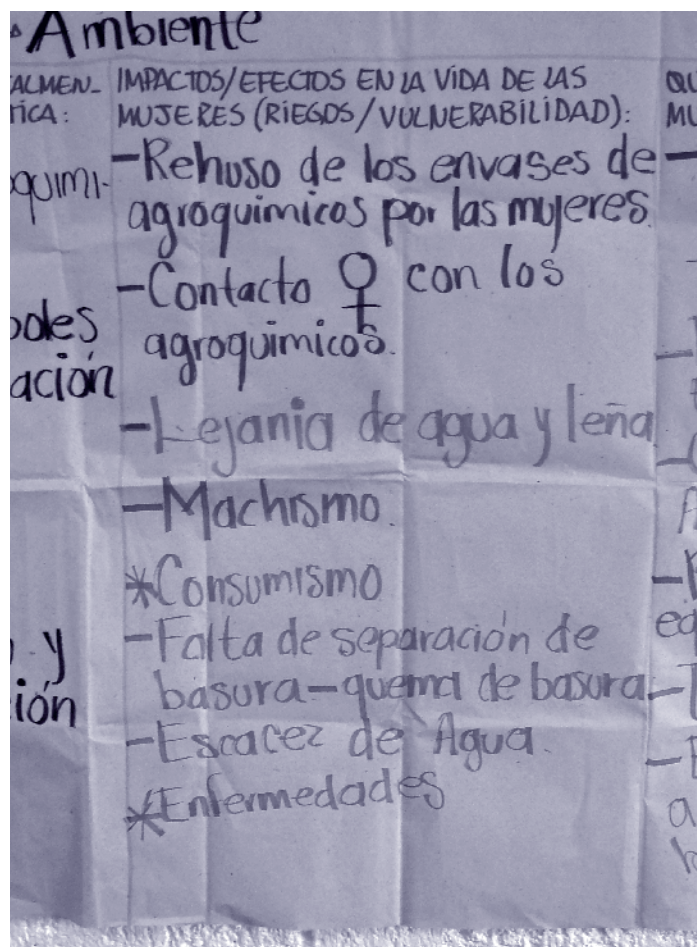 Ambiente
IMPACTOS/EFECTOS EN LA VIDA DE LAS
MUJERES (RIEGOS/VULNERABILIDAD):
-Rehuso de los envases de
agroquimicos por las mujeres.
-Contacto ♀ con los
agroquimicos.
-Lejania de agua y leña
-Machismo.
*Consumismo
-Falta de separación de
basura-quema de basura
-Escacez de Agua.
*Enfermedades
ALMEN-
TICA:
quimi-
oles
ación
y
ión